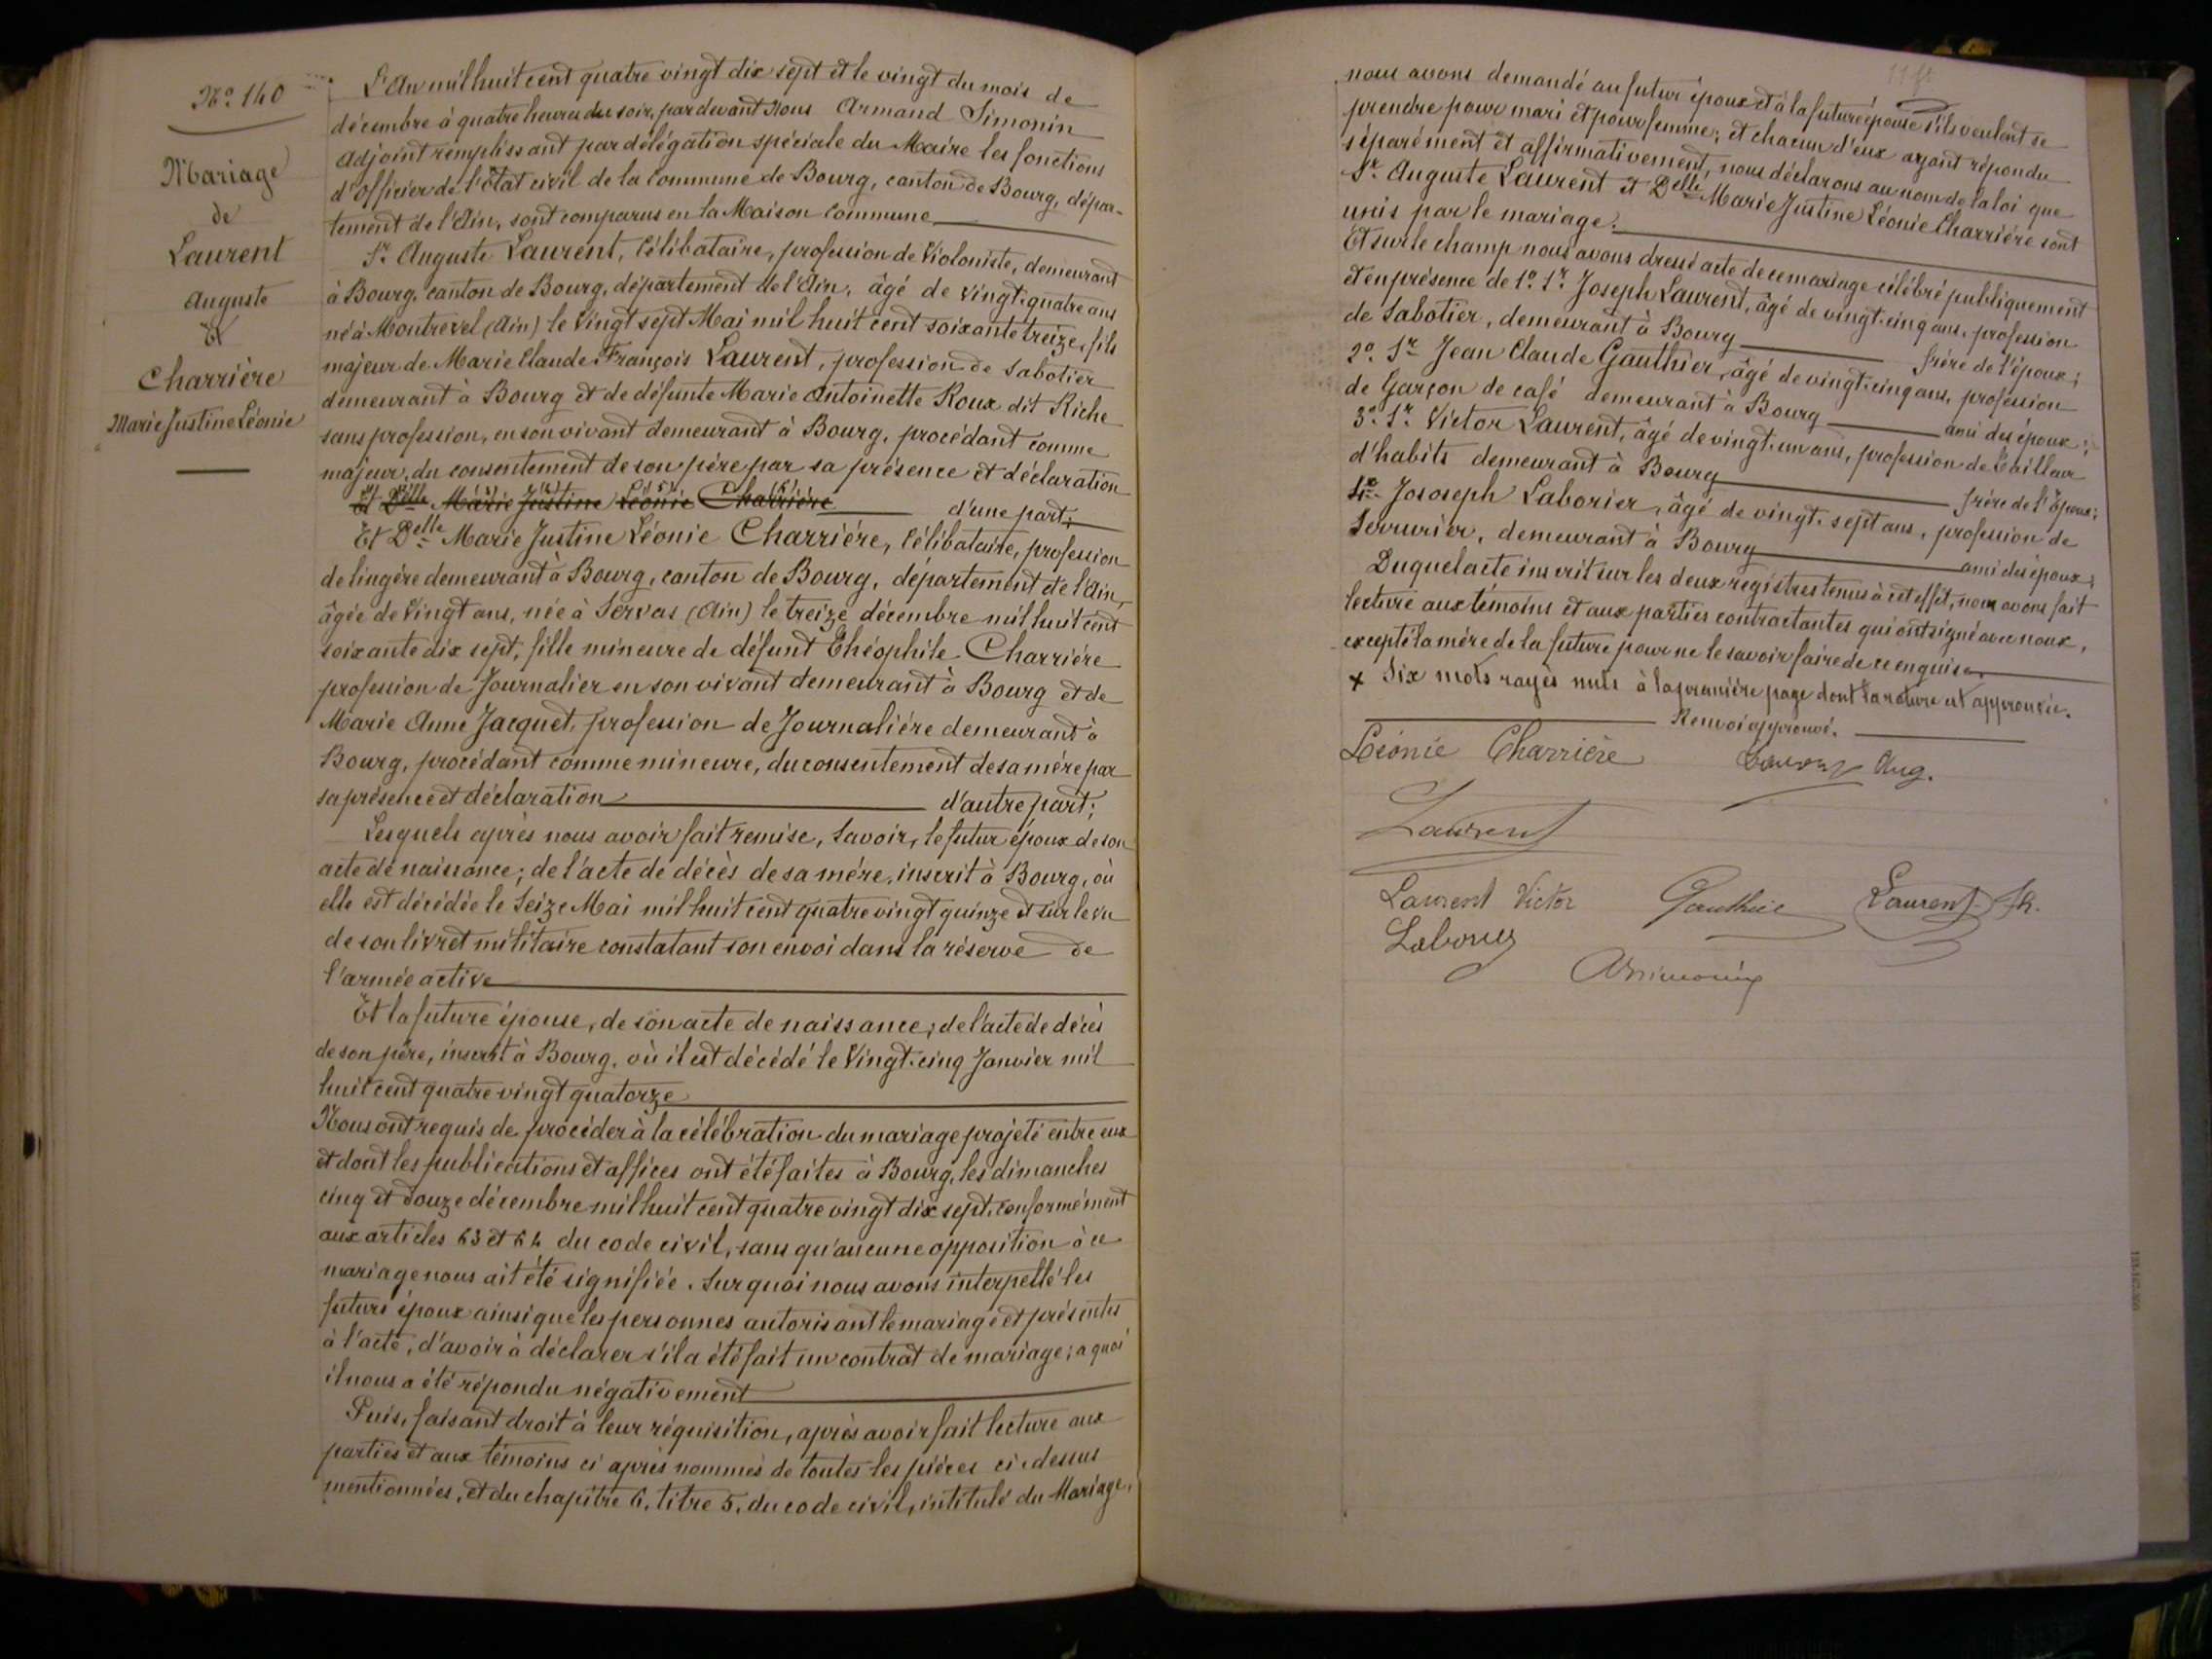 Nº 140
Mariage
de
Laurent
Auguste
Et
Charrière
Marie Justine Léonie
L'An mil huit cent quatre vingt dix sept et le vingt du mois de
décembre à quatre heures du soir, par devant Nous Armand Simonin
Adjoint remplissant par délégation spéciale du Maire les fonctions
d'Officier de l'État civil de la Commune de Bourg, canton de Bourg, dépar-
tement de l'Ain, sont comparus en la Maison Commune
Sr. Auguste Laurent, Célibataire, profession de Violoniste, demeurant
à Bourg, canton de Bourg, département de l'Ain, âgé de vingt-quatre ans
né à Montrevel (Ain) le Vingt sept Mai mil huit cent soixante treize, fils
majeur de Marie Claude François Laurent, profession de Sabotier
demeurant à Bourg et de défunte Marie Antoinette Roux dit Riche
sans profession, en son vivant demeurant à Bourg, procédant comme
majeur, du consentement de son père par sa présence et déclaration
Et Delle Marie Justine Léonie Charrière d'une part;
Et Delle Marie Justine Léonie Charriére, Célibataire, profession
de lingère demeurant à Bourg, canton de Bourg, département de l'Ain,
âgée de Vingt ans, née à Servas (Ain) le treize décembre mil huit cent
soixante dix sept, fille mineure de défunt Théophile Charriére
profession de Journalier en son vivant demeurant à Bourg et de
Marie Anne Jacquet, profession de Journaliére demeurant à
Bourg, procédant comme mineure, du consentement de sa mère par
sa présence et déclaration d'autre part;
Lesquels après nous avoir fait remise, Savoir, le futur époux de son
acte de naissance; de l'acte de décès de sa mére, inscrit à Bourg, où
elle est décédée le Seize Mai mil huit cent quatre vingt quinze et sur le vu
de son livret militaire constatant son envoi dans la réserve de
l'armée active
Et la future épouse, de son acte de naissance; de l'acte de décès
de son père, inscrit à Bourg, où il est décédé le Vingt-cinq Janvier mil
huit cent quatre vingt quatorze
Nous ont requis de procéder à la célébration du mariage projeté entre eux
et dont les publications et affices ont été faites à Bourg, les dimanches
cinq et douze décembre mil huit cent quatre vingt dix sept, conformément
aux articles 63 et 64 du code civil, sans qu'aucune opposition à ce
mariage nous ait été signifiée. Sur quoi nous avons interpellé les
futurs époux ainsi que les personnes autorisant le mariage et présentes
à l'acte, d'avoir à déclarer s'il a été fait un contrat de mariage; a quoi
il nous a été répondu négativement
Puis, faisant droit à leur réquisition, après avoir fait lecture aux
parties et aux témoins ci après nommés de toutes les pièces ci-dessus
mentionnées, et du chapitre 6, titre 5, du code civil, intitulé du Mariage,
nous avons demandé au futur époux et à la future épouse s'ils veulent se
prendre pour mari et pour femme; et chacun d'eux ayant répondu
séparément et affirmativement, nous déclarons au nom de la loi que
Sr. Auguste Laurent et Delle Marie Justine Léonie Charriére sont
unis par le mariage.
Et sur le champ nous avons dressé acte de ce mariage célébré publiquement
et en présence de 1º. Sr. Joseph Laurent, âgé de vingt-cinq ans, profession
de Sabotier, demeurant à Bourg frère de l'époux;
2º. Sr. Jean Claude Gauthier, âgé de vingt-cinq ans, profession
de Garçon de café demeurant à Bourg ami des époux;
3º. Sr. Victor Laurent, âgé de vingt-un ans, profession de Tailleur
d'habits demeurant à Bourg frère de l'Époux;
4º. Jososeph Laborier, âgé de vingt-sept ans, profession de
Serrurier, demeurant à Bourg ami des époux;
Duquel acte inscrit sur les deux registres tenus à cet effet, nous avons fait
lecture aux témoins et aux parties contractantes qui ont signé avec nous,
excepté la mère de la future pour ne le savoir faire de ce enquise.
x Six mots rayés nuls à la première page dont la rature est approuvée.
Renvoi approuvé.
Léonie Charrière Laurent Aug.
Laurent
Laurent Victor Gauthier Laurent Jh.
Laborier
ASimonin